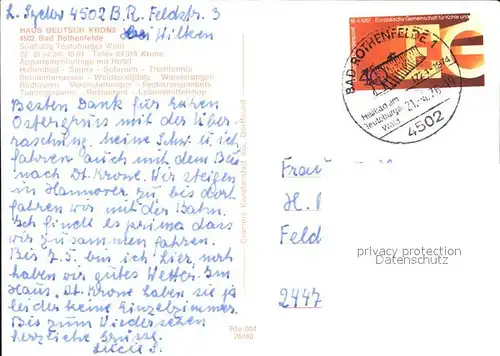 4502 B.R. Feldstr. 3
bei Wilken
HAUS DEUTSCH KRONE
4502 Bad Rothenfelde
Südhang Teutoburger Wald
Appartementanlage mit Hotel
Hallenbad - Sauna - Solarium - Thermalbad
Sonnenterrassen - Waldspielplatz - Wanderungen
Radtouren - Veranstaltungen - Ferienprogramm
Restaurant - Lebensmittelshop
Besten Dank für euren
Ostergruss mit der Über
raschung. Meine Schw. u. ich
fahren auch mit dem Bus
nach Dt. Krone. Wir steigen
in Hannover zu, bis dort
fahren wir mit der Bahn.
Ich finde es prima dass
wir zusammen fahren.
Bis 7.5. bin ich hier, noch
haben wir gutes Wetter. Im
Haus. Dt. Krone haben sie ja
leider keine Einzelzimmer.
Bis zum Wiedersehen
herzliche Grüsse.
Lucie S.
Cramers Kunstanstalt KG, Dortmund
Rfe 044
76/60
18.4.1951 Europäische Gemeinschaft für Kohle und
BAD ROTHENFELDE 1
1724-1974
Heilbad am
Teutoburger
Wald
21.-4.76
4502
Frau
H.
Feld
2447
privacy protection
AKPool.de